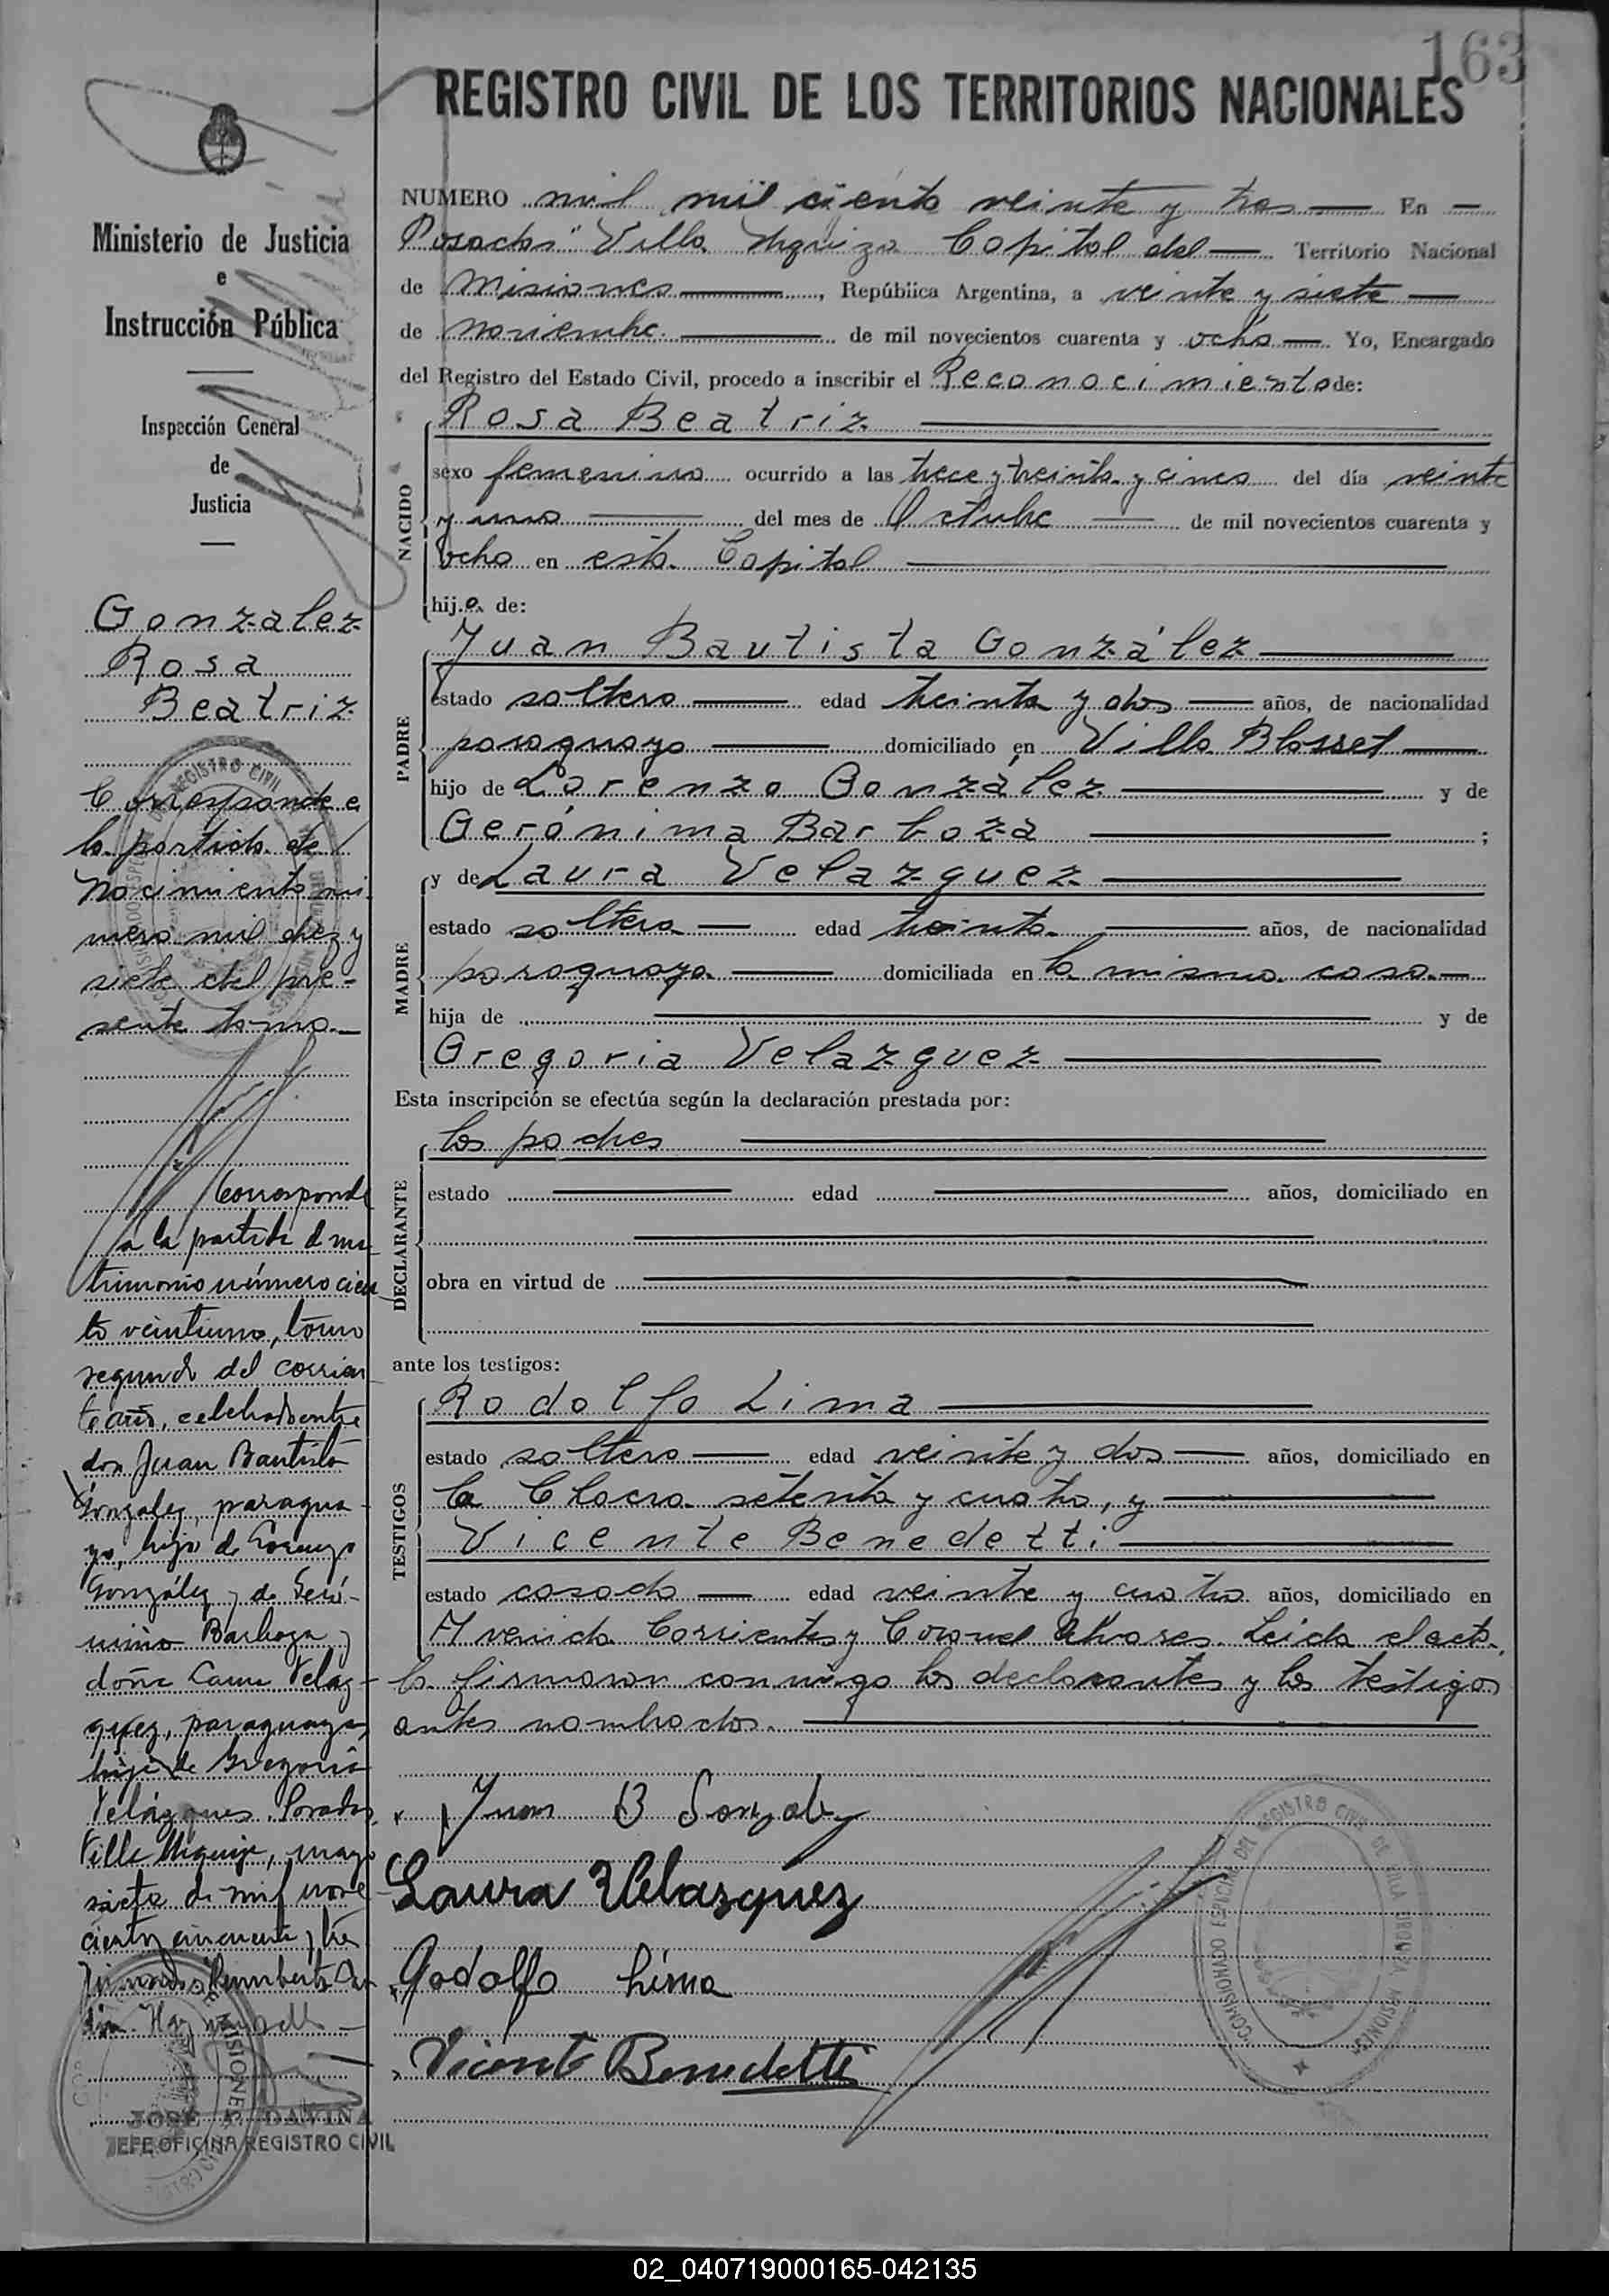 163
REGISTRO CIVIL DE LOS TERRITORIOS NACIONALES
Ministerio de Justicia
e
Instrucción Pública
Inspección General
de
Justicia
Gonzalez
Rosa
Beatriz
Corresponde a
la partida de
Nacimiento nú
mero mil diez y
siete del pre-
sente tomo.
Corresponde
a la partida d ma
trimonio número cien
to veintiuno, tomo
segundo del corrien
te año, celebrado entre
don Juan Bautista
González, paragua-
yo, hijo de Lorenzo
González y de Geró-
nima Barboza y
doña Laura Veláz-
quez, paraguaya,
hija de Gregoria
Velázques. Posadas
Villa Urquiza, mayo
siete de mil nove
cientos cincuenta y tres
Firmado: Humberto
Hay un sello
JOSE A. DAVIÑA
JEFE OFICINA REGISTRO CIVIL
NUMERO mil mil ciento veinte y tres En
Posadas "Villa Urquiza Capital del Territorio Nacional
de Misiones, República Argentina, a veinte y siete
de noviembre de mil novecientos cuarenta y ocho Yo, Encargado
del Registro del Estado Civil, procedo a inscribir el Reconocimiento de:
NACIDO
Rosa Beatriz
sexo femenino ocurrido a las trece y treinta y cinco del día veinte
y uno del mes de Octubre de mil novecientos cuarenta y
ocho en esta Capital
hija de:
PADRE
Juan Bautista González
estado soltero edad treinta y dos años, de nacionalidad
paraguaya domiciliado en Villa Blosset
hijo de Lorenzo González y de
Gerónima Barboza ;
MADRE
y de Laura Velazquez
estado soltera edad treinta años, de nacionalidad
paraguaya domiciliada en la misma casa.
hija de y de
Gregoria Velazquez
Esta inscripción se efectúa según la declaración prestada por:
DECLARANTE
los padres
estado edad años, domiciliado en
obra en virtud de
ante los testigos:
TESTIGOS
Rodolfo Lima
estado soltero edad veinte y dos años, domiciliado en
la Chacra setenta y cuatro, y
Vicente Benedetti
estado casado edad veinte y cuatro años, domiciliado en
Avenida Corrientes y Coronel Alvares. Leida el acta,
la firmaron conmigo los declarantes y los testigos
antes nombrados.
Juan B Gonzalez
Laura Velasquez
Rodolfo Lima
Vicente Benedetti
COMISIONADO ESPECIAL DEL REGISTRO CIVIL DE VILLA URQUIZA MISIONES
02_040719000165-042135